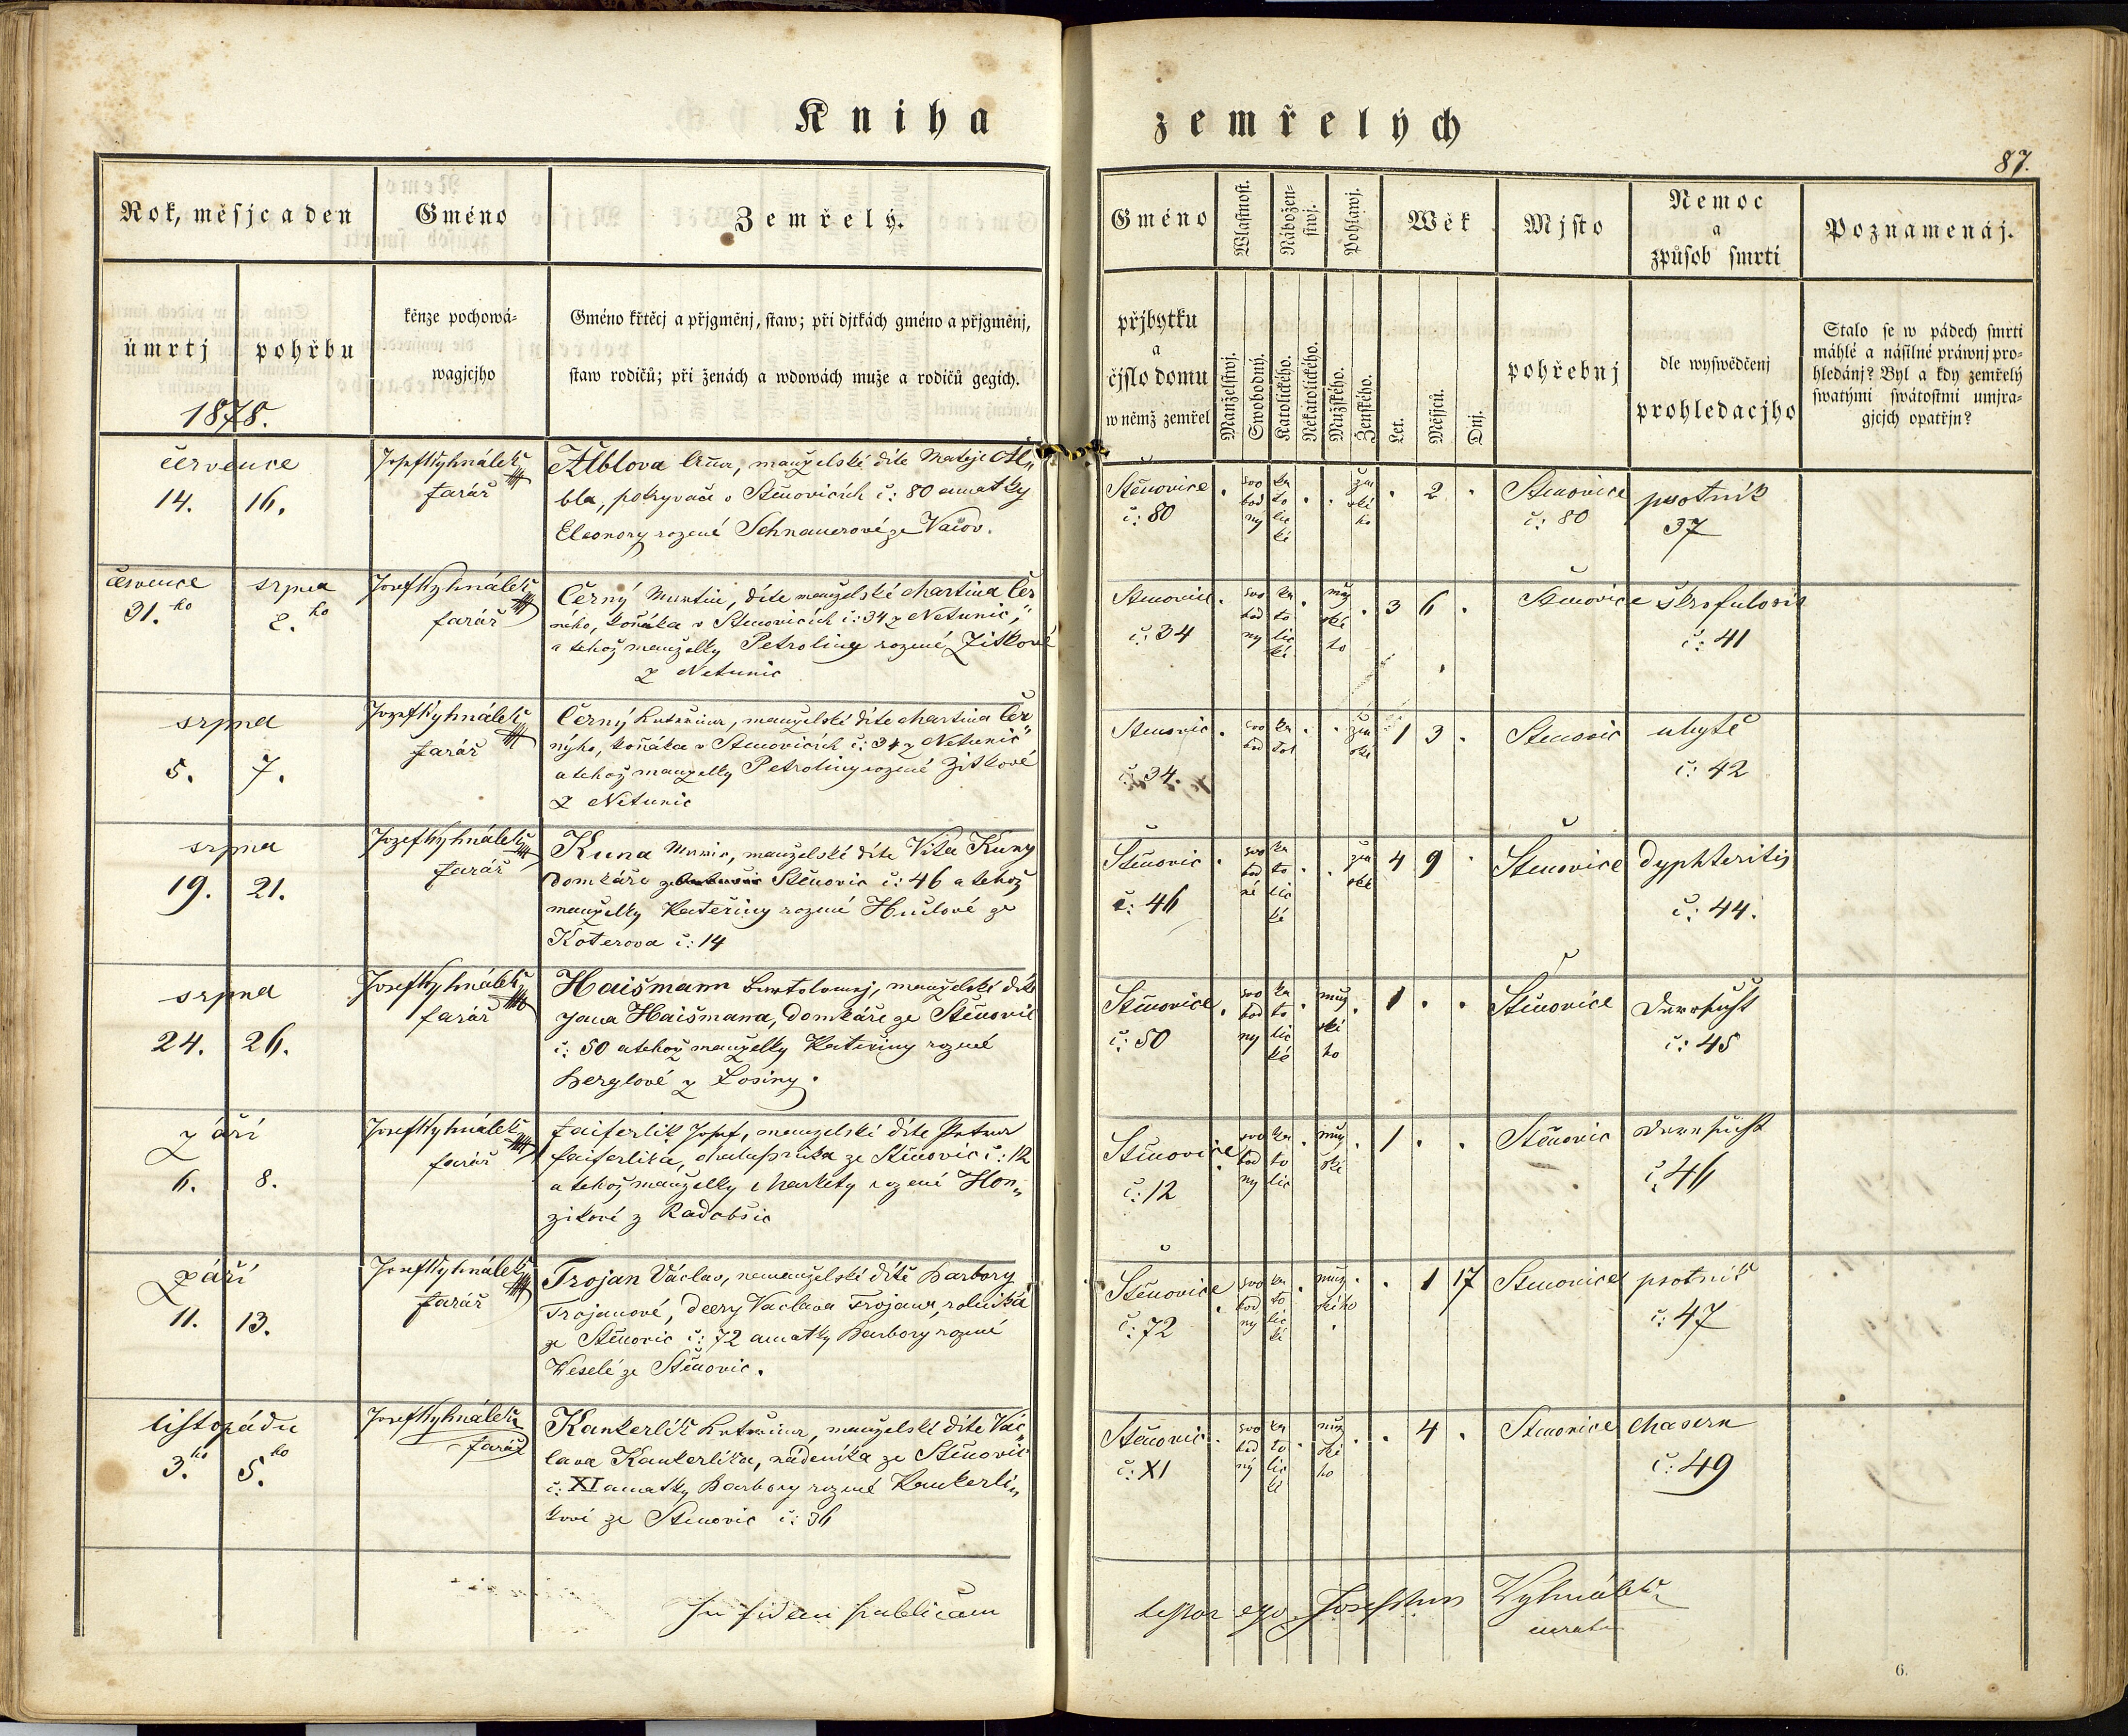 Kniha zemřelých
87.
Rok, měsjc a den
Gméno
Zemřelý.
Gméno
Wlastnost.
Nábožen-
stwj.
Pohlawj.
Wěk
Mjsto
Nemoc
a
způsob smrti
Poznamenáj.
úmrtj
pohřbu
kěnze pochowá-
wagjcjho
Gméno křtěcj a přjgměnj, staw; při djtkách gméno a přjgměnj,
staw rodičů; při ženách a wdowách muže a rodičů gegich.
přjbytku
a
čjslo domu
w němž zemřel
Manželstwj.
Swobodný.
Katolického.
Nekatolického.
Mužského.
Ženského.
Let.
Měsjců.
Dnj.
pohřebnj
dle wyswědčenj
prohledacjho
Stalo se w pádech smrti
máhlé a násilné práwnj pro-
hledánj? Byl a kdy zemřelý
swatými swátostmi umjra-
gjcjch opatřjn?
1878.
července
14. 16.
Josef Vyhnálek
farář
Alblova Anna, manželské díte Mateje Al„
bla, pokryvače v Stěnovicích č: 80 a matky
Eleonory rozené Schnauerové ze
Stěnovice
č: 80
svo
bod
ný
ka
to
lic
ké
žen
ské
ho
2
Stenovice
č: 80
psotník
37
července
31.ho
srpna
2.ho
Josef Vyhnálek
farář
Černý Martin, díte manželské Martina Čer
neho, koňáka v Stenovicích č: 34 z Netunic„
a tehož manželky Petroliny rozené Zitkové
z Netunic
Stenovice
č: 34
svo
bod
ny
ka
to
lic
ké
muž
ské
ho
3 6
Stenovice
škrofulosis
č: 41
srpna
5. 7.
Jozef Vyhnálek
farář
Černý Kateřina, manželské díte Martina Čer„
nýho, koňáka v Stenovicích č: 34 z Netunic
a tehož manzelky Petroliny rozené Zitkové
z Netunic
Stenovic
č: 34.
svo
bod
ka
tol
žen
ské
1 3
Stenovic
ubytě
č: 42
srpna
19. 21.
Jozef Vyhnálek
farář
Kuna Marie, manželské díte Víta Kuny
domkáře ze Stěnovic č: 46 a tehož
manželky Kateřiny rozené Hučlové ze
Koterova č: 14
Stěnovic
č: 46
svo
bod
né
ka
to
lic
ké
žen
ské
4 9
Stenovice
dyphteritis
č: 44.
srpna
24. 26.
Josef Vyhnálek
farář
Haišmann Bartolomej, manželské díte
Jana Haišmana, domkáře ze Stěnovic
č: 50 a tehož manželky Kateřiny rozené
Berglové z Losiny.
Stěnovice
č: 50
svo
bod
ny
ka
to
lic
ké
muž
ské
ho
1
Stěnovice
Darrsucht
č: 45
září
6. 8.
Josef Vyhnálek
farář
Faiferlik Josef, manzelské díte Petra
Faiferlika, chalupníka ze Stěnovic č: 12
a tehož manželky Markéty rozené Hon„
zikové z Radobšic
Stěnovice
č: 12
svo
bod
ny
ka
to
lic
muž
ské
1
Stěnovic
Darrsucht
č. 46
září
11. 13.
Josef Vyhnálek
farář
Trojan Václav, nemanželské dítě Barbory
Trojanové, dcery Vaclava Trojana, rolníka
ze Stěnovic č: 72 a matky Barbory rozené
Weselé ze Stěnovic.
Stěnovice
č: 72
svo
bod
ny
ka
to
lic
ké
muž
ského
1 17
Stenovice
psotník
č: 47
listopádu
3.ho 5.ho
Josef Vyhnálek
farář
Kankerlík Kateřina, manželské díte Vác„
lava Kankerlíka, nádeníka ze Stěnovic
č: XI a matky Barbory rozené Kankerli„
kové ze Stenovic č: 36
Stěnovic
č: XI
svo
bod
ný
ka
to
lic
ké
muž
ské
ho
4
Stenovice
Masern
č: 49
In fidem publicam
testor ego Josephus Vyhnálek
curatus
6.